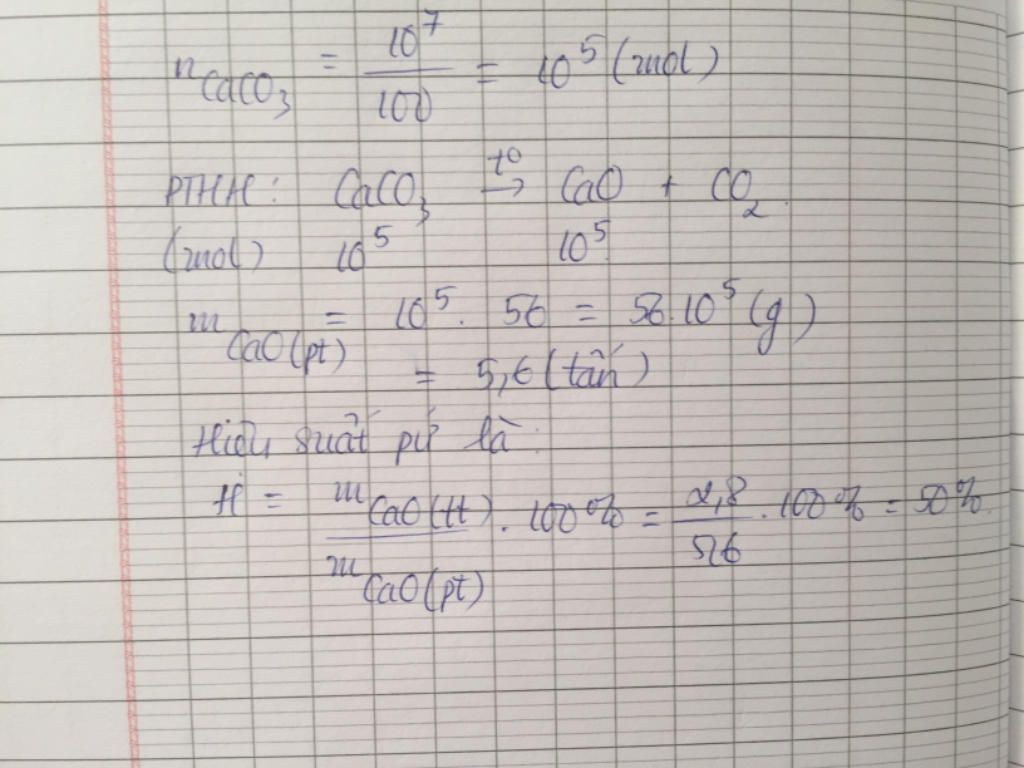 n CaCO₃ = 10⁷/100 = 10⁵ (mol)
PTHH: CaCO₃ t⁰→ CaO + CO₂
(mol) 10⁵ 10⁵
m CaO(pt) = 10⁵. 56 = 56.10⁵ (g)
= 5,6 (tấn)
Hiệu suất pứ là:
H = m CaO(tt)/m CaO(pt) . 100% = 2,8/5,6 . 100% = 50%.